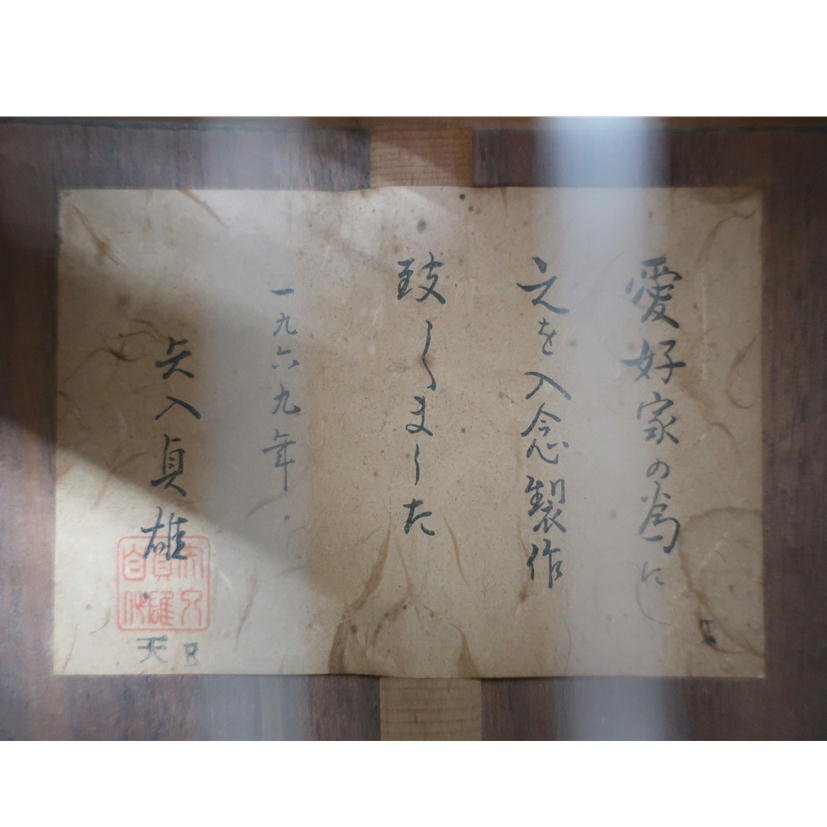 愛好家の為に
之を入念製作
致しました
一九六九年
矢入貞雄
矢入貞雄自作
天